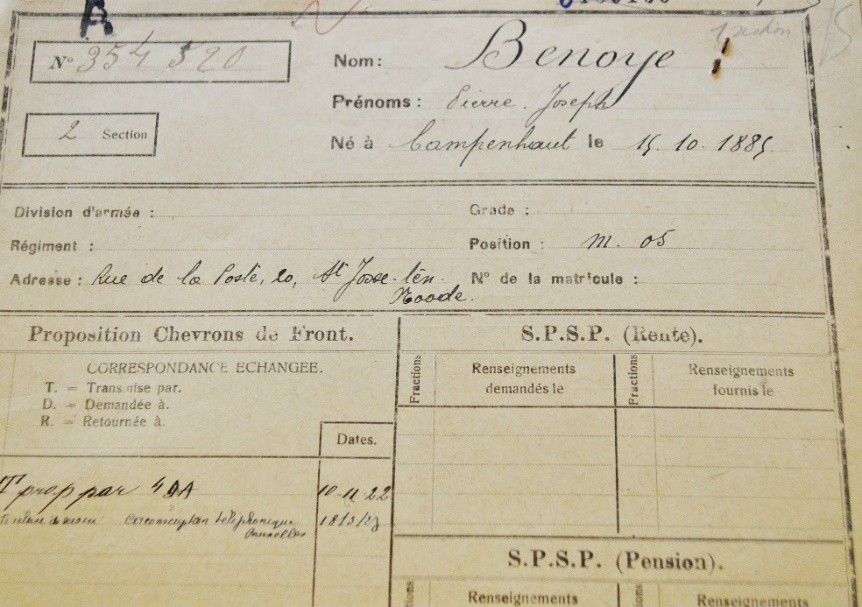 A
N° 354 520
2 Section
Nom: Benoye
Prénoms: Pierre Joseph
Né à Campenhaut le 15. 10. 1885
Division d'armée :
Grade :
Régiment :
Position : m. 05
Adresse : Rue de la Poste, 20, St Josse-ten-
Noode.
N° de la matricule :
Proposition Chevrons de Front.
CORRESPONDANCE ECHANGEE.
T. = Transmise par.
D. = Demandée à.
R. = Retournée à.
Dates.
T prop par 4 DA 10-11-22
Circonscription téléphonique 18/3/23
Bruxelles
S.P.S.P. (Rente).
Fractions
Renseignements
demandés le
Fractions
Renseignements
fournis le
S.P.S.P. (Pension).
Renseignements
Renseignements